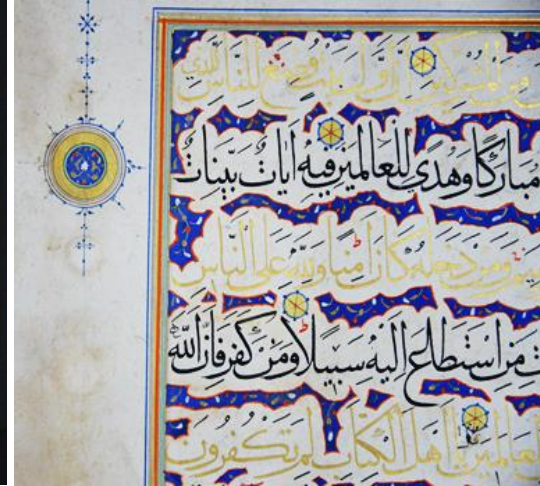 المشركين إن أول بيت وضع للناس للذي
مباركا وهدى للعالمين فيه آيات بينات
ومن دخله كان آمنا ولله على الناس
من استطاع إليه سبيلا ومن كفر فإن الله
العالمين اهل الكتاب لم تكفرون